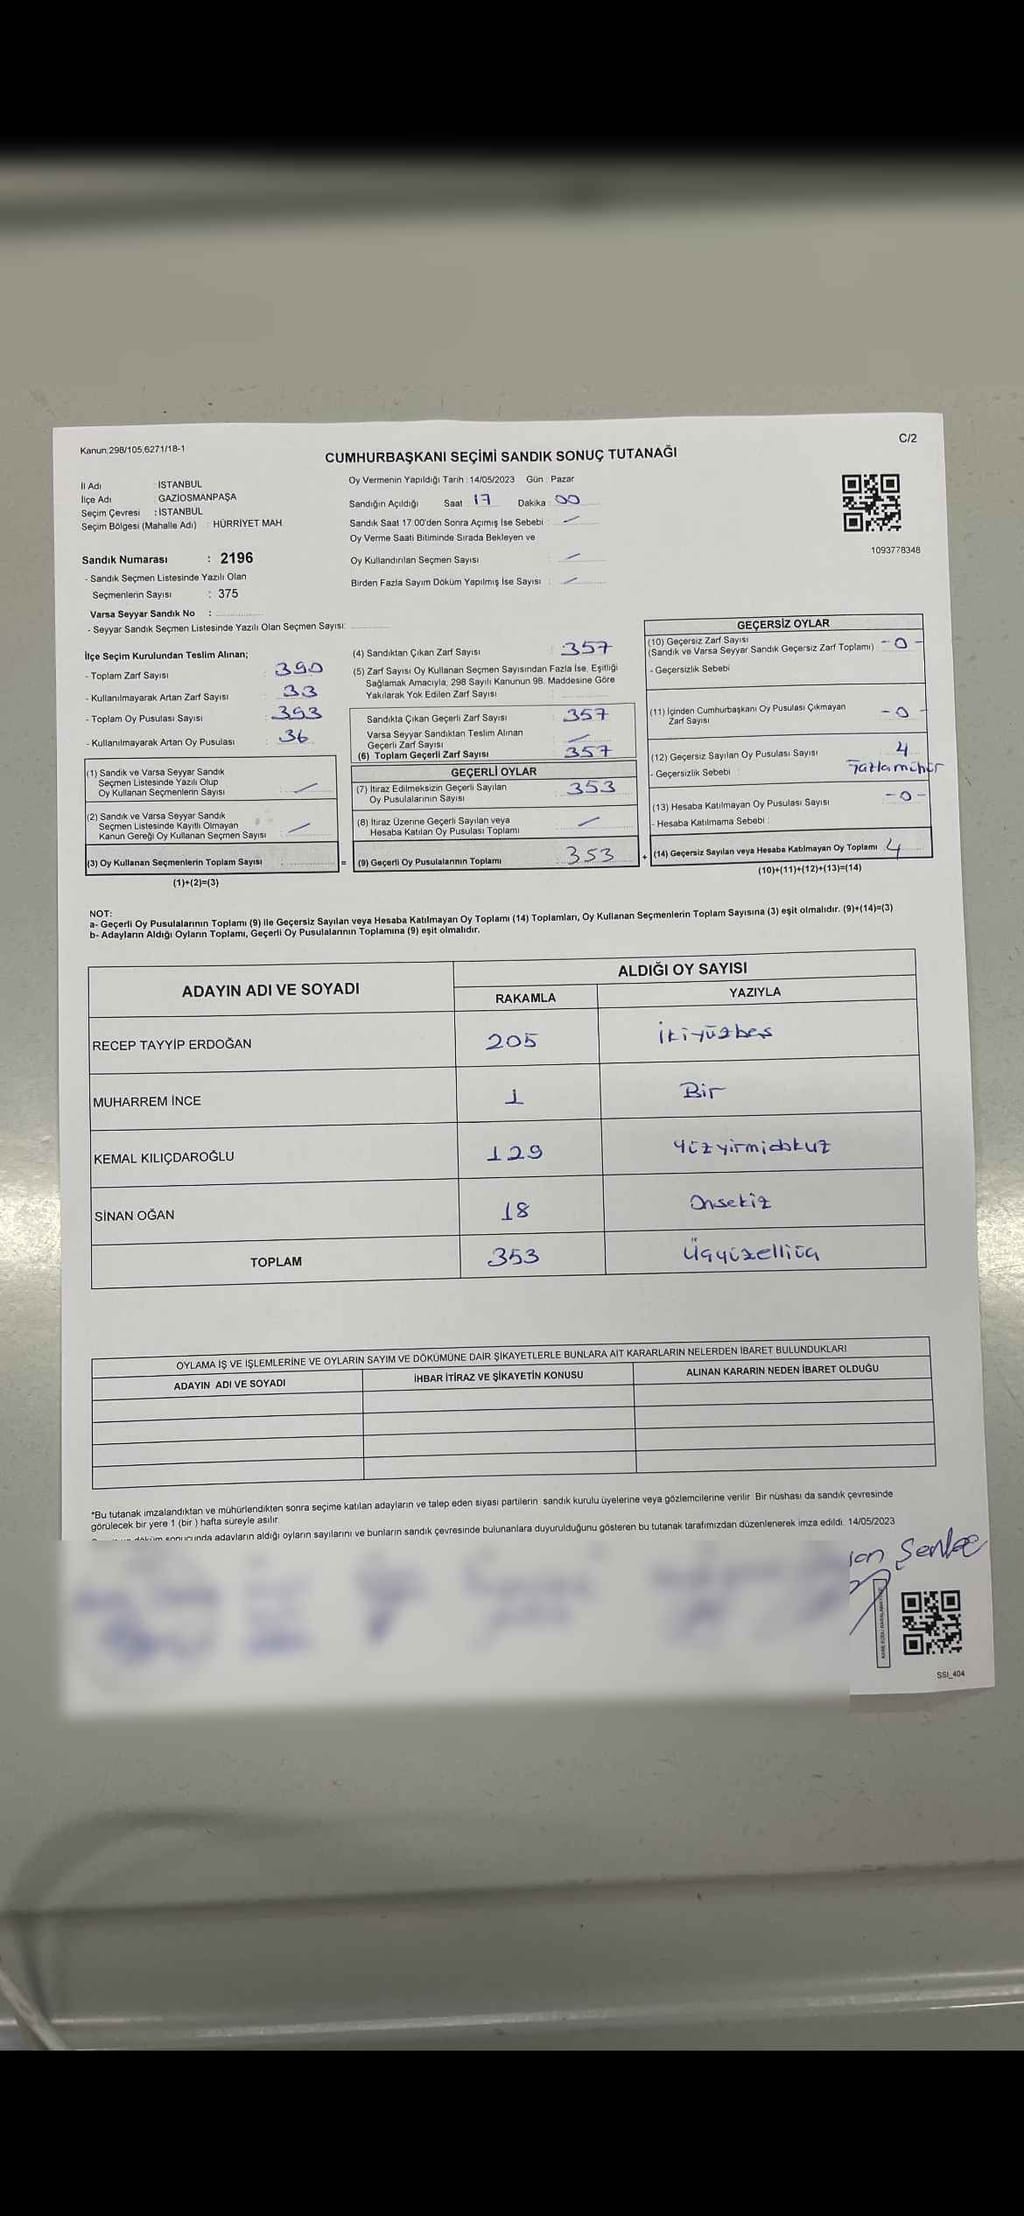 Kanun:298/105,6271/18-1
C/2
CUMHURBAŞKANI SEÇİMİ SANDIK SONUÇ TUTANAĞI
İl Adı : İSTANBUL
İlçe Adı GAZİOSMANPAŞA
Seçim Çevresi : İSTANBUL
Seçim Bölgesi (Mahalle Adı) : HÜRRİYET MAH
Oy Vermenin Yapıldığı Tarih : 14/05/2023 Gün : Pazar
Sandığın Açıldığı Saat 17 Dakika : 00
Sandık Saat 17 00'den Sonra Açımış İse Sebebi :
Oy Verme Saati Bitiminde Sırada Bekleyen ve
Oy Kullandırılan Seçmen Sayısı
Birden Fazla Sayım Döküm Yapılmış İse Sayısı :
1093778348
Sandık Numarası : 2196
- Sandık Seçmen Listesinde Yazılı Olan
Seçmenlerin Sayısı : 375
Varsa Seyyar Sandık No :
- Seyyar Sandık Seçmen Listesinde Yazılı Olan Seçmen Sayısı:
İlçe Seçim Kurulundan Teslim Alınan;
- Toplam Zarf Sayısı : 390
- Kullanılmayarak Artan Zarf Sayısı : 33
- Toplam Oy Pusulası Sayısı : 393
- Kullanılmayarak Artan Oy Pusulası : 36
(1) Sandık ve Varsa Seyyar Sandık
Seçmen Listesinde Yazılı Olup
Oy Kullanan Seçmenlerin Sayısı
(2) Sandık ve Varsa Seyyar Sandık
Seçmen Listesinde Kayıtlı Olmayan
Kanun Gereği Oy Kullanan Seçmen Sayısı
(3) Oy Kullanan Seçmenlerin Toplam Sayısı :
(1)+(2)=(3)
=
(4) Sandıktan Çıkan Zarf Sayısı : 357
(5) Zarf Sayısı Oy Kullanan Seçmen Sayısından Fazla İse, Eşitliği
Sağlamak Amacıyla, 298 Sayılı Kanunun 98. Maddesine Göre
Yakılarak Yok Edilen Zarf Sayısı
Sandıkta Çıkan Geçerli Zarf Sayısı : 357
Varsa Seyyar Sandıktan Teslim Alınan
Geçerli Zarf Sayısı
(6) Toplam Geçerli Zarf Sayısı : 357
GEÇERLİ OYLAR
(7) İtiraz Edilmeksizin Geçerli Sayılan 353
Oy Pusulalarının Sayısı
(8) İtiraz Üzerine Geçerli Sayılan veya
Hesaba Katılan Oy Pusulası Toplamı
(9) Geçerli Oy Pusulalarının Toplamı : 353
+
GEÇERSİZ OYLAR
(10) Geçersiz Zarf Sayısı
(Sandık ve Varsa Seyyar Sandık Geçersiz Zarf Toplamı) -0-
- Geçersizlik Sebebi
(11) İçinden Cumhurbaşkanı Oy Pusulası Çıkmayan -0-
Zarf Sayısı
(12) Geçersiz Sayılan Oy Pusulası Sayısı 4
- Geçersizlik Sebebi : Fazlamühür
(13) Hesaba Katılmayan Oy Pusulası Sayısı -0-
- Hesaba Katılmama Sebebi :
(14) Geçersiz Sayılan veya Hesaba Katılmayan Oy Toplamı : 4
(10)+(11)+(12)+(13)=(14)
NOT:
a- Geçerli Oy Pusulalarının Toplamı (9) ile Geçersiz Sayılan veya Hesaba Katılmayan Oy Toplamı (14) Toplamları, Oy Kullanan Seçmenlerin Toplam Sayısına (3) eşit olmalıdır. (9)+(14)=(3)
b- Adayların Aldığı Oyların Toplamı, Geçerli Oy Pusulalarının Toplamına (9) eşit olmalıdır.
ADAYIN ADI VE SOYADI
ALDIĞI OY SAYISI
RAKAMLA YAZIYLA
RECEP TAYYİP ERDOĞAN 205 İkiyüzbeş
MUHARREM İNCE 1 Bir
KEMAL KILIÇDAROĞLU 129 Yüzyirmidokuz
SİNAN OĞAN 18 Onsekiz
TOPLAM 353 Üçyüzelliüç
OYLAMA İŞ VE İŞLEMLERİNE VE OYLARIN SAYIM VE DÖKÜMÜNE DAİR ŞİKAYETLERLE BUNLARA AİT KARARLARIN NELERDEN İBARET BULUNDUKLARI
ADAYIN ADI VE SOYADI İHBAR İTİRAZ VE ŞİKAYETİN KONUSU ALINAN KARARIN NEDEN İBARET OLDUĞU
*Bu tutanak imzalandıktan ve mühürlendikten sonra seçime katılan adayların ve talep eden siyasi partilerin sandık kurulu üyelerine veya gözlemcilerine verilir. Bir nüshası da sandık çevresinde
görülecek bir yere 1 (bir ) hafta süreyle asılır.
döküm sonucunda adayların aldığı oyların sayılarını ve bunların sandık çevresinde bulunanlara duyurulduğunu gösteren bu tutanak tarafımızdan düzenlenerek imza edildi. 14/05/2023
SSI_404